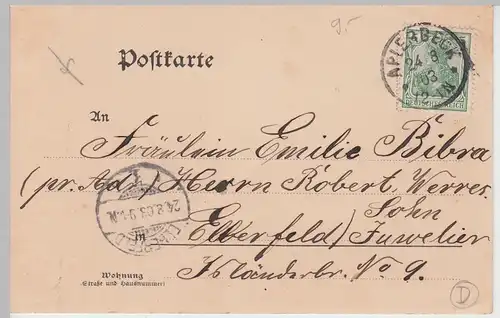 9.-
Postkarte
APLERBECK
24 8
03
DEUTSCHES REICH
An
Fräulein Emilie Bibra
(pr. Ad.) Herrn Robert Werres
Sohn
Elberfeld) Juwelier
24.8.03.9-
ELBERFELD
Isländerbr. No 9.
Wohnung
(Straße und Hausnummer)
D